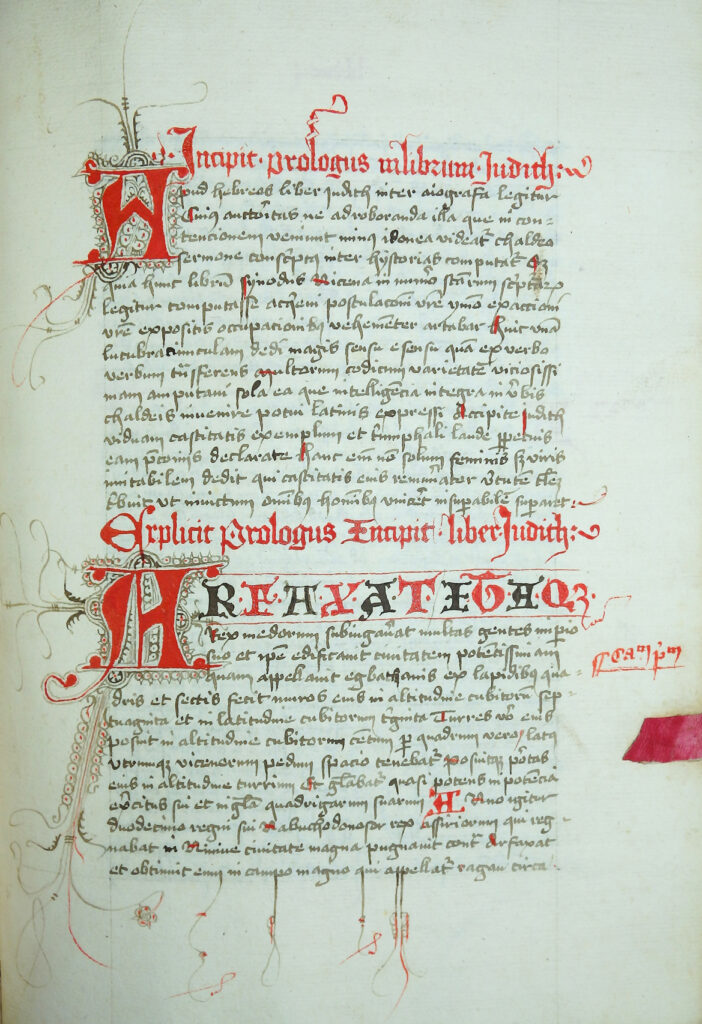 Incipit prologus in librum Judith:
Apud hebreos liber Judith inter aiografa legitur
Cuiꝯ auctoritas ne ad roboranda illa que in con-
tencionem veniunt minꝯ idonea videat᷑ chaldeo
sermone conscptꝯ inter hystorias computat᷑ Q
uia hunc librū synodus Nicena in numo scarum scptar
legitur computasse acheni postulaconi vre ymo exaccioni
vrē expositis occupacionibꝯ vehemēter artabar huic vnā
lucubraciunculam dedi magis sensu e sensu quā ex verbo
verbum tnsferens multorum codicum varietate viciosissi
mam amputaui sola ea que intelligēcia integra in vbis
chaldeis inuenire potui latinis expressi Accipite Judith
viduam castitatis exemplum et tumphali laude ppetuis
eam pconijs declarate hanc em nō solum feminis sz viris
imitabilem dedit qui castitatis eius remunator vtutem
tbuit vt inuictum omnibꝯ hominibꝯ vincet insuperabilē superaret
Explicit Prologus Incipit liber Judith:
ARFAXAT ITAQꝫ
Rex medorum subiugauat multas gentes impio
suo et ipē edificauit ciuitatem potētissimam
quam appellauit egbathanis ex lapidibꝯ qua-
dris et sectis fecit muros eius in altitudine cubitorū sep-
tuaginta et in latitudine cubitorum tginta Turres vo eius
posuit in altitudine cubitorum centum p quadrum vero latꝯ
vtrumqꝫ vicenorum pedum spacio tenebat᷑ Posuitqꝫ portas
eius in altitudine turrium Et glabat᷑ quasi potens in potēcia
exercitus sui et in gla quadrigarum suarum Anno igitur
duodecimo regni sui Nabuchodonosor rex assiriorum qui reg-
nabat in Niniue ciuitate magna pugnauit cont Arfaxat
et obtinuit eum in campo magno qui appellat᷑ ragau circa
Caᵐ pᵐ